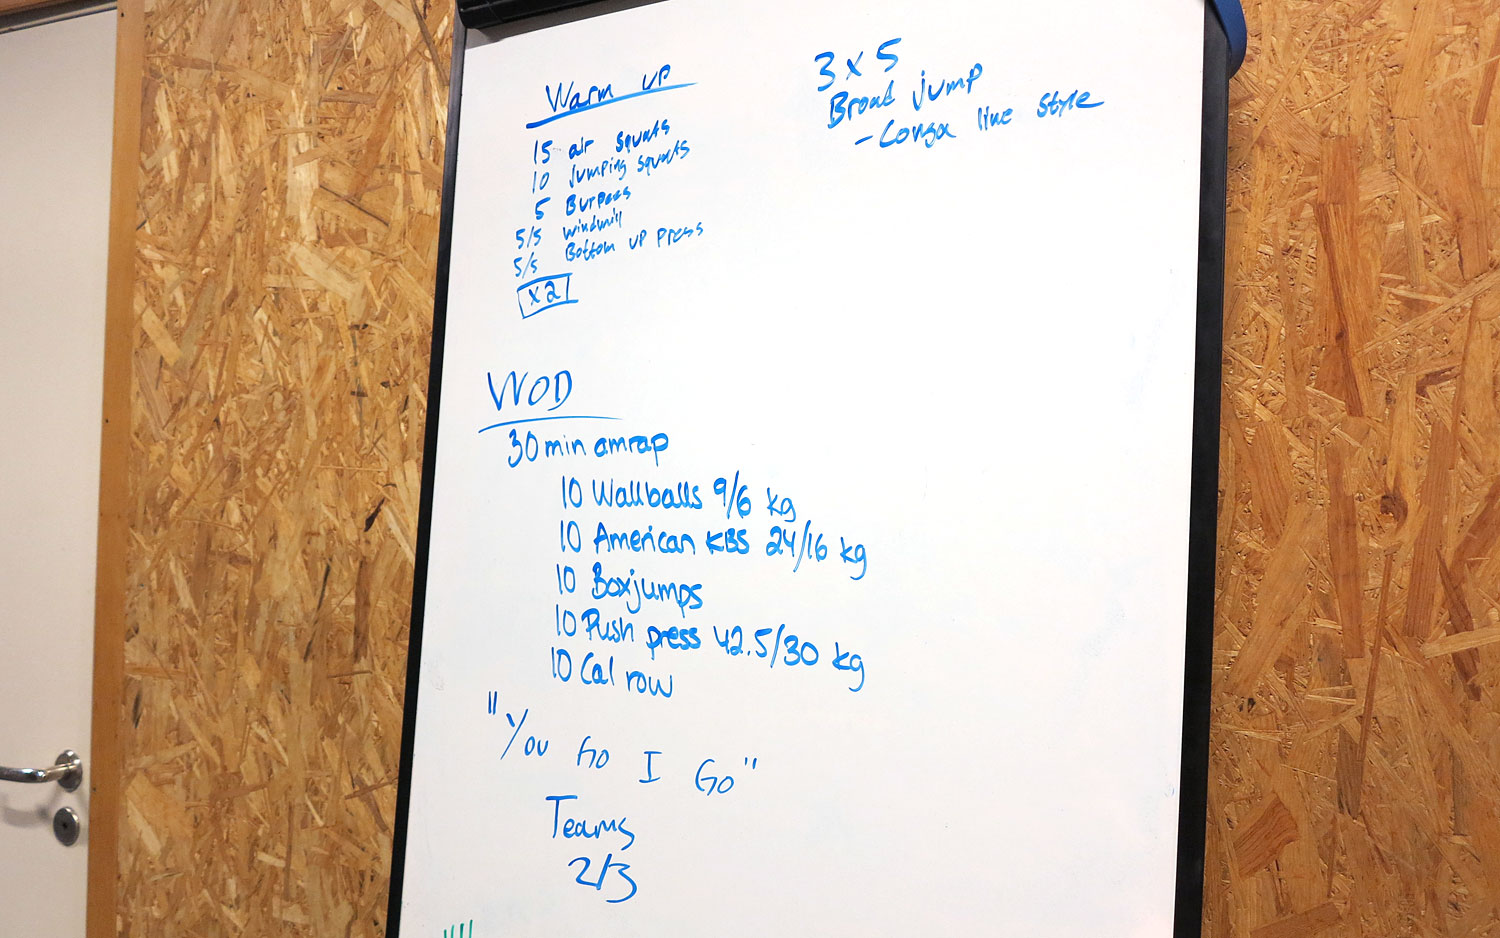 Warm up
15 air squats
10 jumping squats
5 Burpees
5/5 windmill
5/5 Bottom up press
x2
3 x 5
Broad jump
- Conga line style
WOD
30 min amrap
10 Wallballs 9/6 kg
10 American KBS 24/16 kg
10 Boxjumps
10 Push press 42.5/30 kg
10 Cal row
"You Go I Go"
Teams
2/3